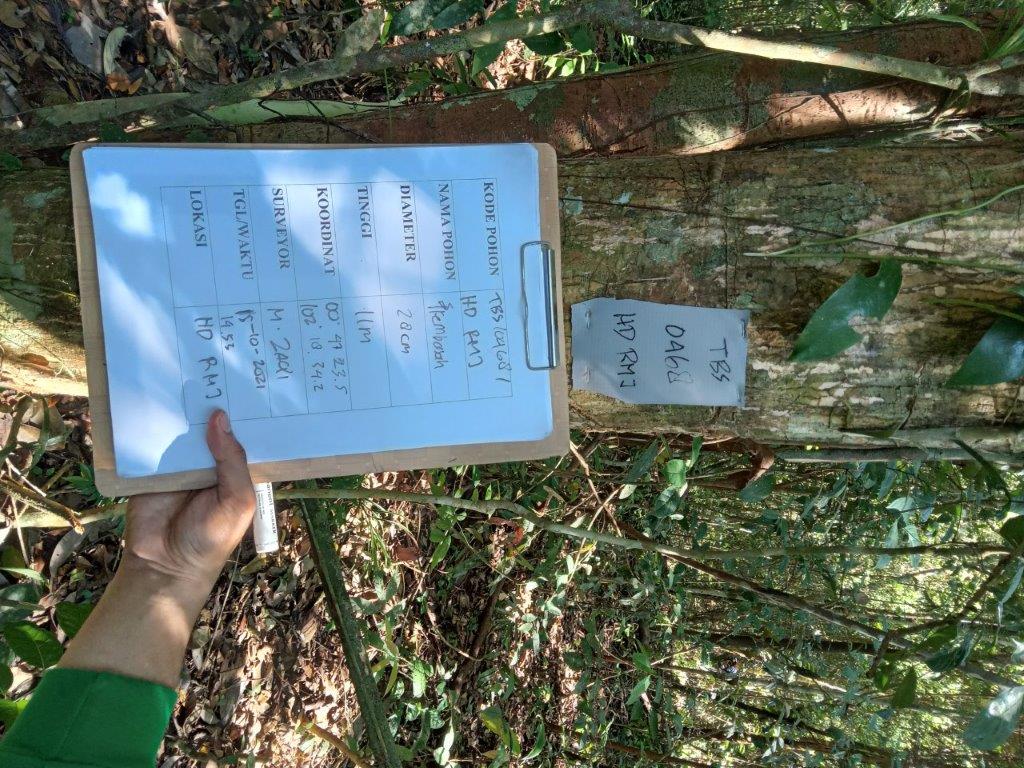 TBS
0468
HD RMJ
KODE POHON TBS/0468/
HD RMJ
NAMA POHON
DIAMETER 28cm
TINGGI 11m
KOORDINAT 00° 47 23.5
102° 18. 34.2
SURVEYOR M. ZAQI
TGL/WAKTU 15-10-2021
14.53
LOKASI HD RMJ